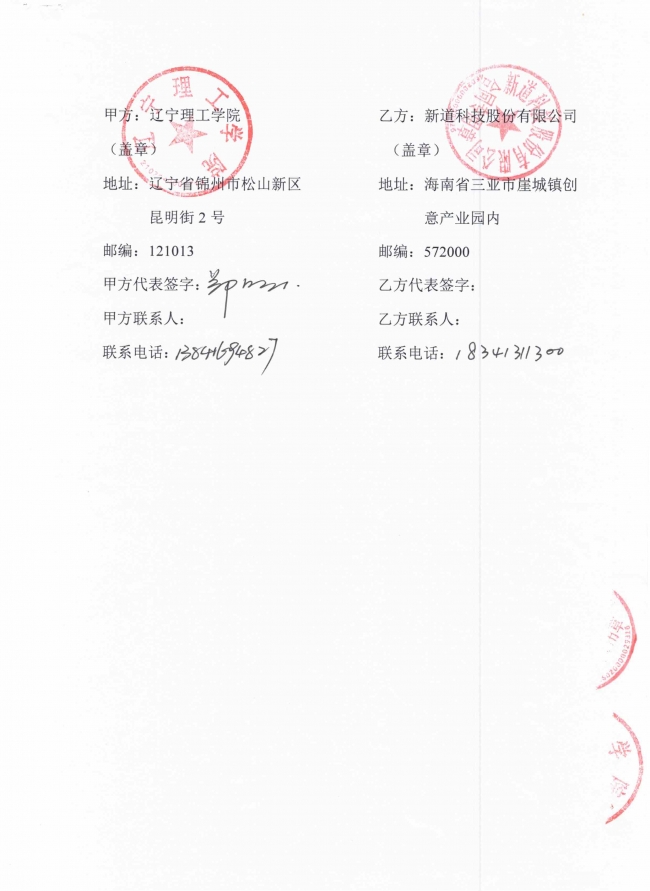 甲方：辽宁理工学院
（盖章）
地址：辽宁省锦州市松山新区
昆明街 2 号
邮编：121013
甲方代表签字：
甲方联系人：
联系电话：13841694827
乙方：新道科技股份有限公司
（盖章）
地址：海南省三亚市崖城镇创
意产业园内
邮编：572000
乙方代表签字：
乙方联系人：
联系电话：18341311300
辽宁理工学院
新道科技股份有限公司
学院